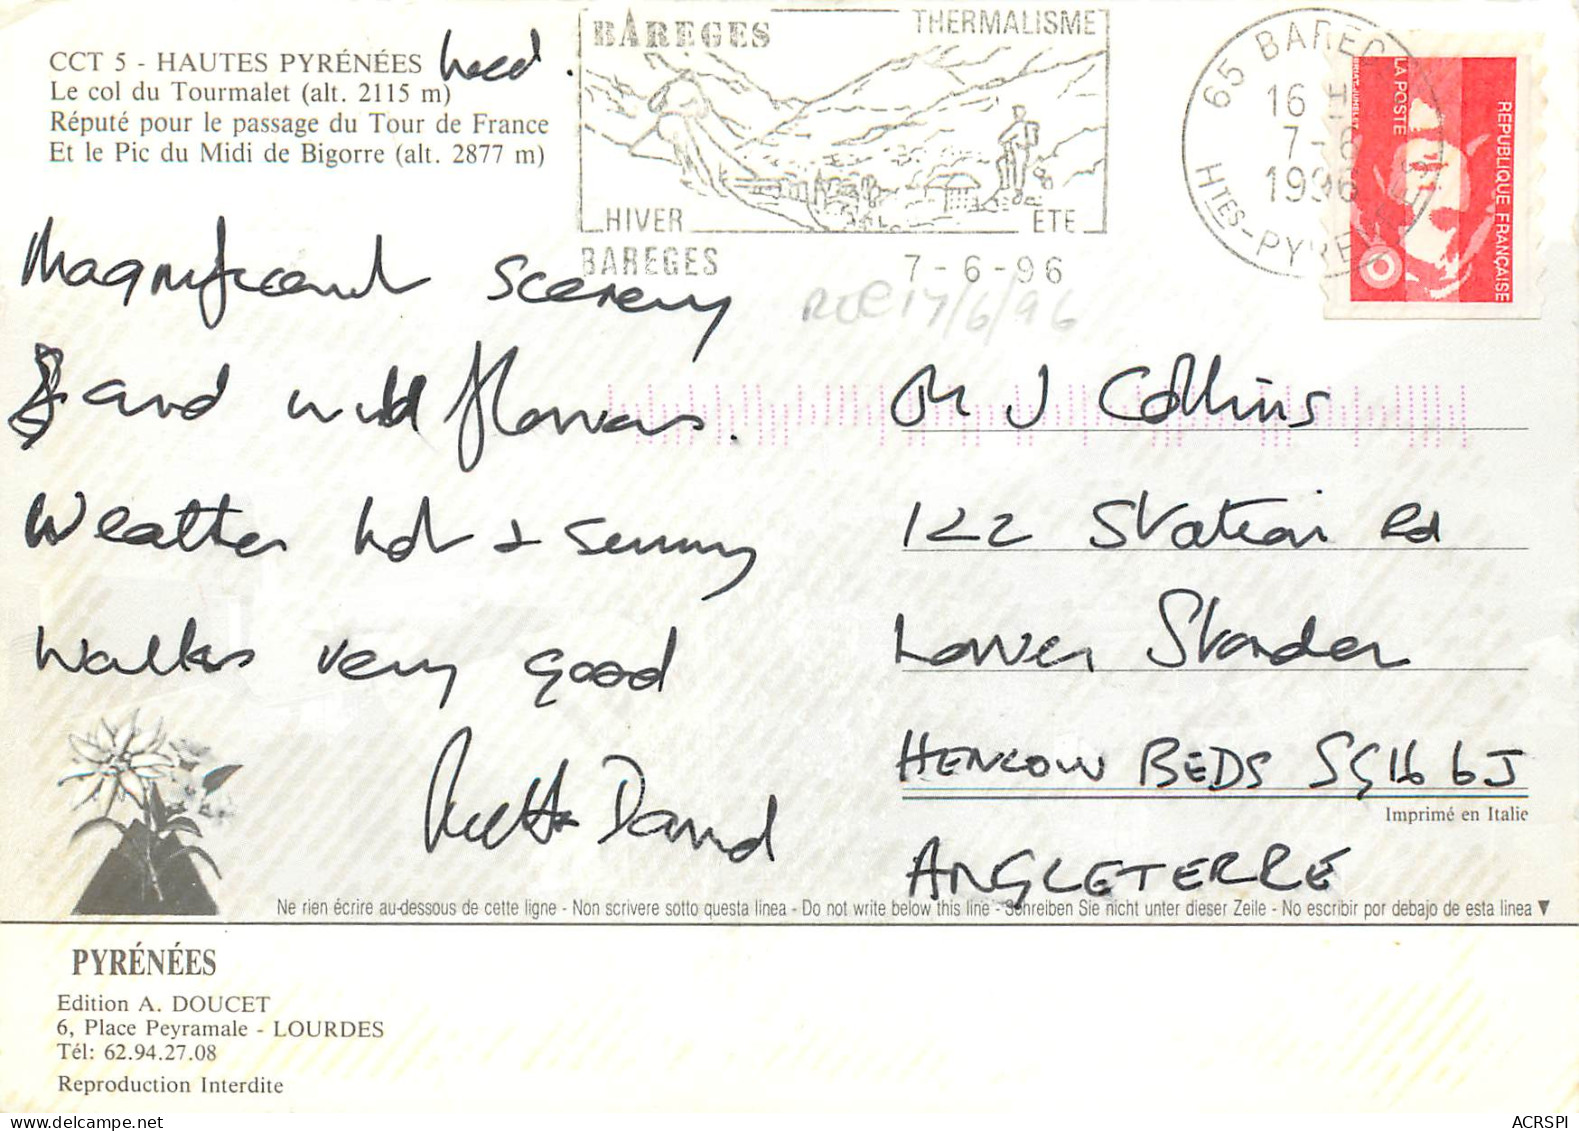 CCT 5 - HAUTES PYRÉNÉES
Le col du Tourmalet (alt. 2115 m)
Réputé pour le passage du Tour de France
Et le Pic du Midi de Bigorre (alt. 2877 m)
BAREGES
THERMALISME
HIVER
ETE
BAREGES 7-6-96
65 BAREGES
16 H
7-6
1996
HTES-PYRENEES
LA POSTE
REPUBLIQUE FRANÇAISE
REC 17/6/96
Magnificant scenery
& and wild flowers.
Weather hot & sunny
Walks very good
David
M J Collins
122 Station Rd
Lower Stondon
HENLOW BEDS SG16 6J
ANGLETERRE
Imprimé en Italie
Ne rien écrire au-dessous de cette ligne - Non scrivere sotto questa linea - Do not write below this line - Schreiben Sie nicht unter dieser Zeile - No escribir por debajo de esta linea ▼
PYRÉNÉES
Edition A. DOUCET
6, Place Peyramale - LOURDES
Tél: 62.94.27.08
Reproduction Interdite
ACRSPI